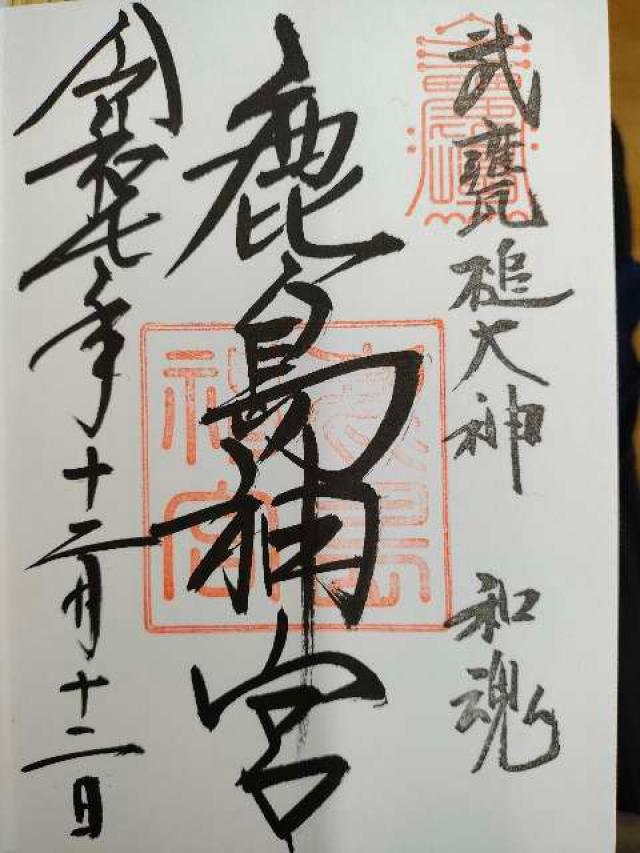 武甕槌大神 和魂
鹿島神宮
令和七年十二月十二日
鹿島神宮